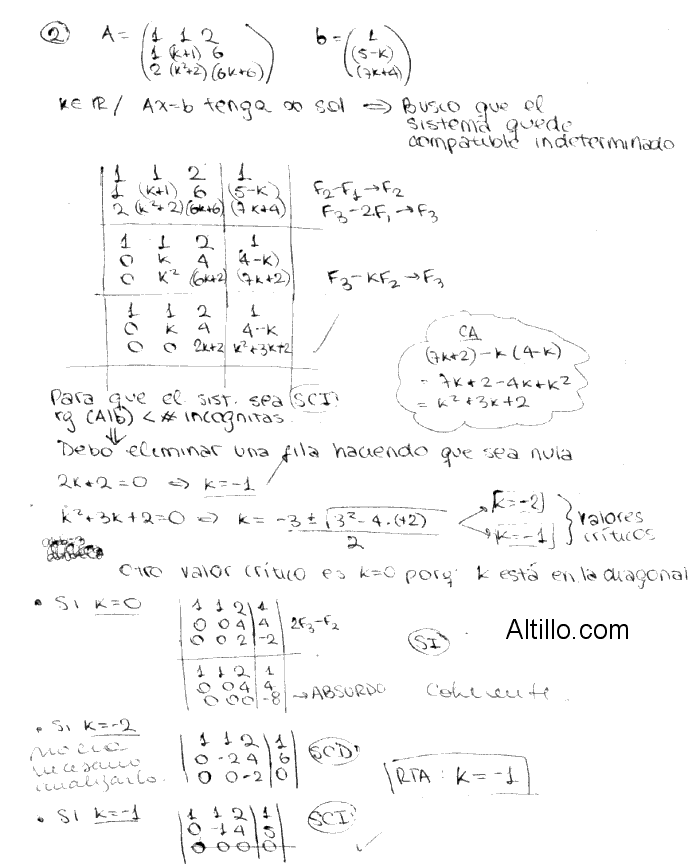 ② A = ( 1 1 2 b = ( 1
1 (k+1) 6 (5-k)
2 (k²+2) (6k+6) ) (7k+4) )
k ∈ ℝ / Ax=b tenga ∞ sol ⇒ Busco que el
sistema quede
compatible indeterminado
1 1 2 | 1
1 (k+1) 6 | (5-k) F₂-F₁→F₂
2 (k²+2) (6k+6) | (7k+4) F₃-2F₁→F₃
1 1 2 | 1
0 k 4 | (4-k)
0 k² (6k+2) | (7k+2) F₃-kF₂→F₃
1 1 2 | 1
0 k 4 | 4-k
0 0 2k+2 | k²+3k+2
CA
(7k+2)-k(4-k)
= 7k+2-4k+k²
= k²+3k+2
Para que el sist. sea SCI:
rg (A|b) < # incognitas.
⇓
Debo eliminar una fila haciendo que sea nula
2k+2=0 ⇒ k=-1
k²+3k+2=0 ⇒ k= -3 ± √3²-4.(+2) / 2 k=-2 k=-1 } valores
críticos
Otro valor crítico es k=0 porq' k está en la diagonal
• Si k=0
1 1 2 | 1
0 0 4 | 4 2F₃-F₂
0 0 2 | -2 SI
Altillo.com
1 1 2 | 1
0 0 4 | 4
0 0 0 | -8 → ABSURDO Coherente.
• Si k=-2
no era
necesario
analizarlo.
1 1 2 | 1
0 -2 4 | 6 SCD
0 0 -2 | 0
RTA: k=-1
• Si k=-1
1 1 2 | 1 SCI
0 -1 4 | 5
0 0 0 | 0